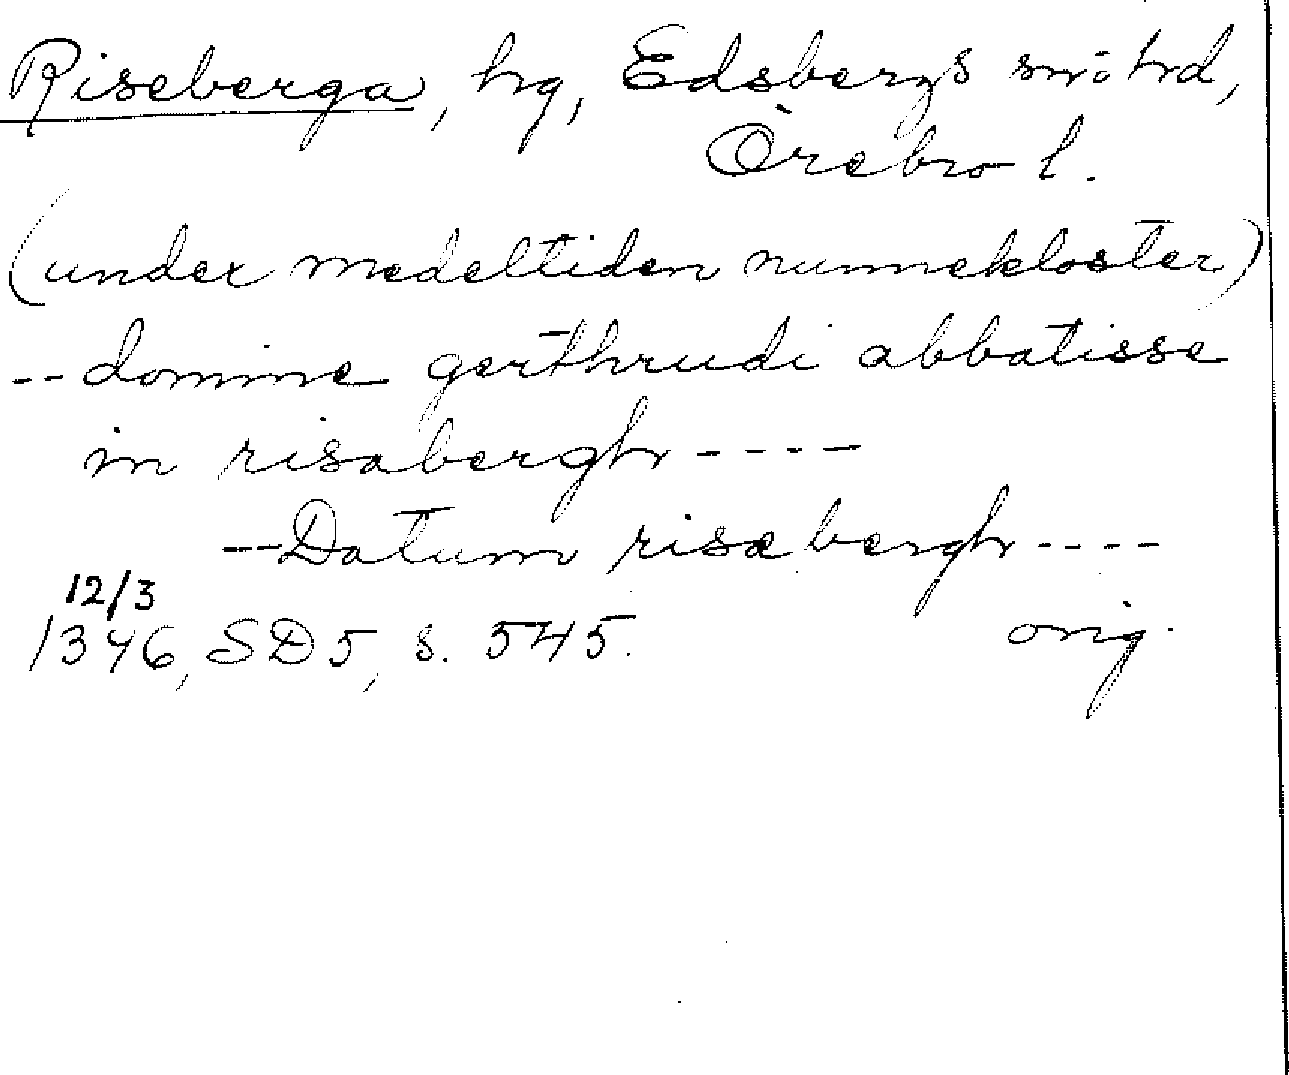 Riseberga, hg, Edsbergs sn o hd,
Örebro l.
(under medeltiden nunnekloster)
-- domine gerthrudi abbatisse
in risabergh ----
-- Datum risæbergh ----
12/3
1346, SD5, s. 545. orig.